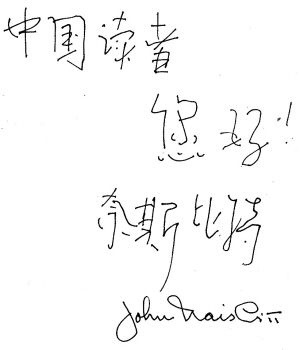 中国读者
您好!
奈斯比特
John Naisbitt